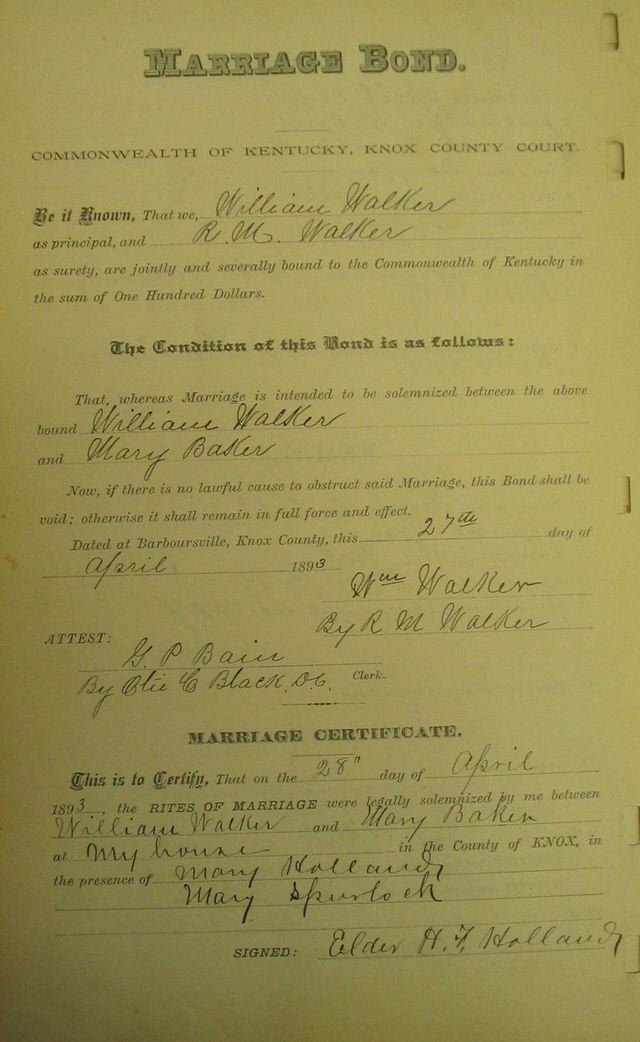 MARRIAGE BOND.
COMMONWEALTH OF KENTUCKY, KNOX COUNTY COURT.
Be it Known, That we, William Walker
as principal, and R. M. Walker
as surety, are jointly and severally bound to the Commonwealth of Kentucky in
the sum of One Hundred Dollars.
The Condition of this Bond is as follows:
That, whereas Marriage is intended to be solemnized between the above
bound William Walker
and Mary Baker
Now, if there is no lawful cause to obstruct said Marriage, this Bond shall be
void; otherwise it shall remain in full force and effect.
Dated at Barboursville, Knox County, this 27th day of
April 1893
Wm Walker
By R M Walker
ATTEST:
G. P Bain
By Olie C Black. D.C. Clerk.
MARRIAGE CERTIFICATE.
This is to Certify, That on the 28" day of April
1893, the RITES OF MARRIAGE were legally solemnized by me between
William Walker and Mary Baker
at My house in the County of KNOX, in
the presence of Mary Holland
Mary Spurlock
SIGNED: Elder H. F. Holland